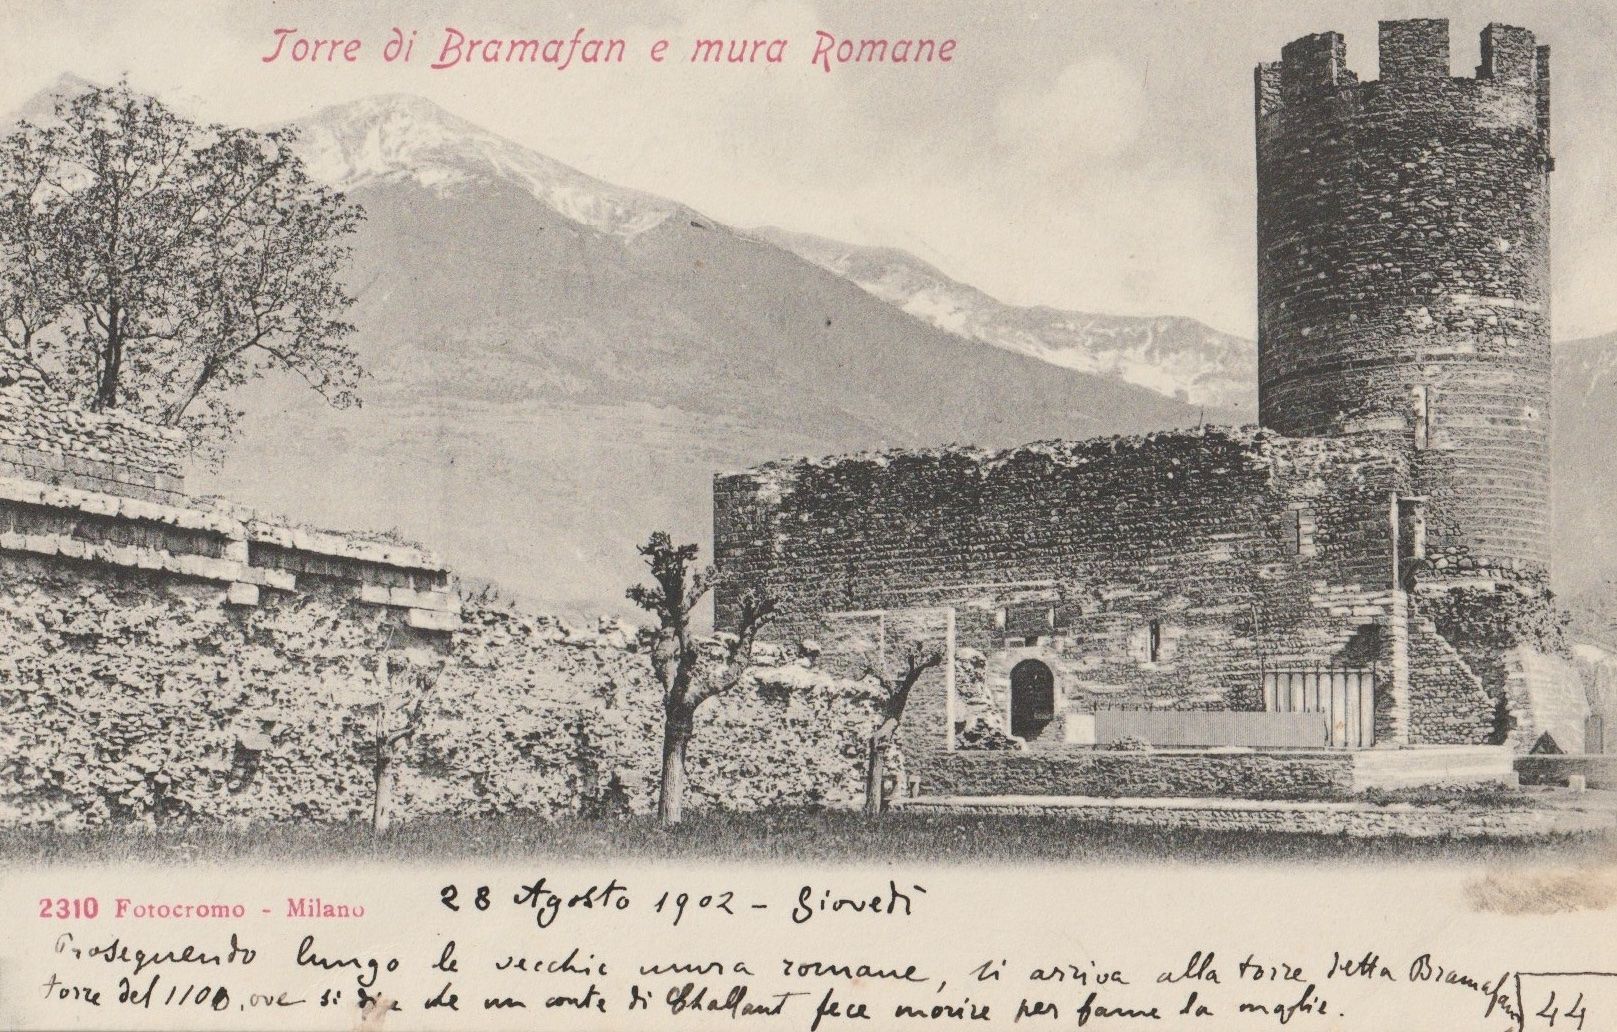 Torre di Bramafan e mura Romane
2310 Fotocromo - Milano
28 Agosto 1902 - Giovedì
Proseguendo lungo le vecchie mura romane, si arriva alla torre detta Bramafan
torre del 1100, ove si dice che un conte di Challant fece morire per fame la moglie.
44